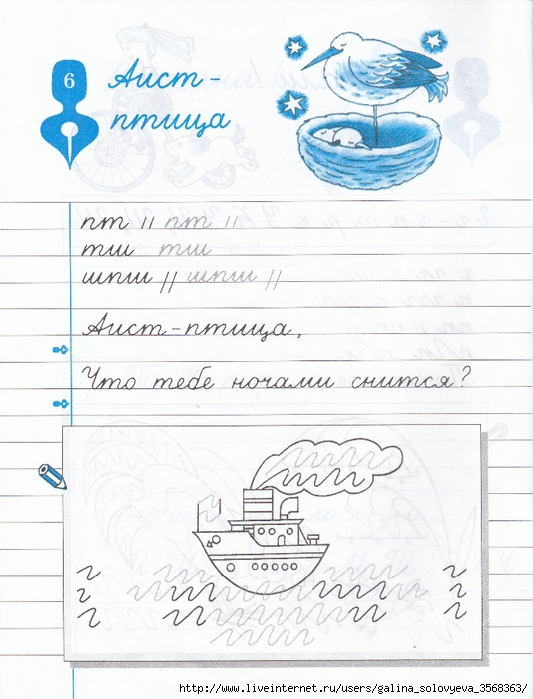 6
Аист -
птица
пт // пт //
тш тш
шпш // шпш //
Аист-птица,
Что тебе ночами снится?
http://www.liveinternet.ru/users/galina_solovyeva_3568363/